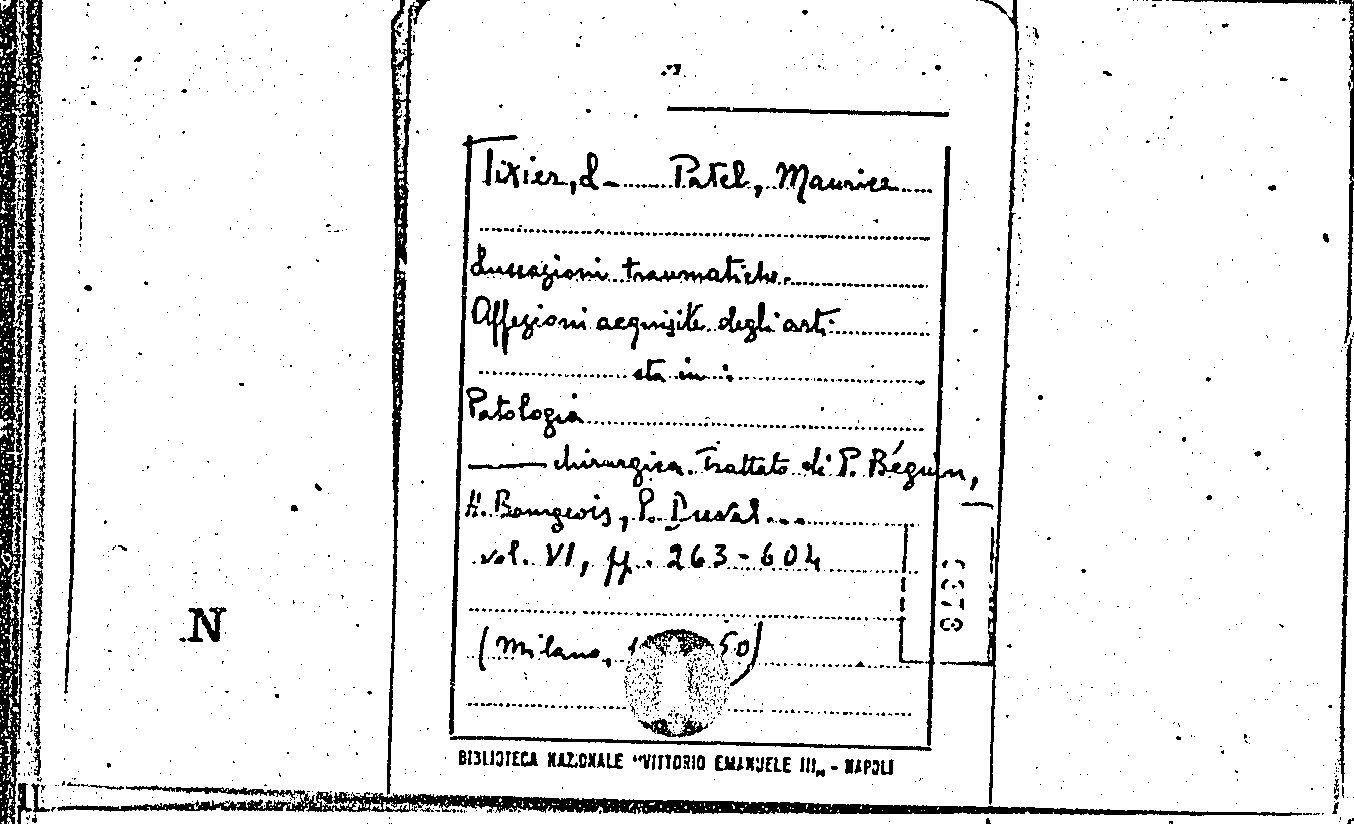 Tixier, L - Patel, Maurice
Lussazioni traumatiche.
Affezioni acquisite degli arti
sta in :
Patologia
—— chirurgica. Trattato di P. Béguin,
H. Bourgeois, P. Duval...
vol. VI, pp. 263-604
(Milano, 50)
N
BIBLIOTECA NAZIONALE "VITTORIO EMANUELE III„ - NAPOLI